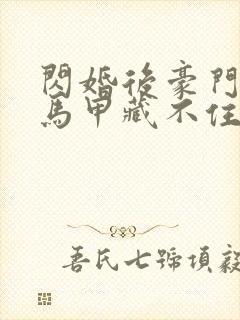 閃婚後豪門
馬甲藏不住
吾氏七號項毅